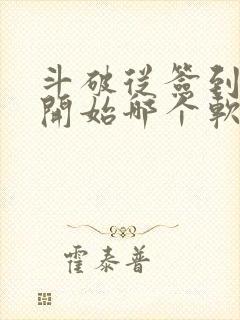 斗破從簽到
開始哪个軟
霍泰普